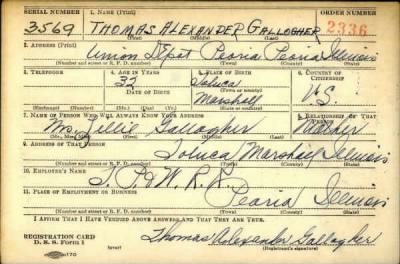 SERIAL NUMBER 1. NAME (Print) ORDER NUMBER
3569 THOMAS ALEXANDER GALLOGHER 2336
(First) (Middle) (Last)
2. ADDRESS (Print)
Union Depot Peoria Peoria Illinois
(Number and street or R. F. D. number) (Town) (County) (State)
3. TELEPHONE 4. AGE IN YEARS 5. PLACE OF BIRTH 6. COUNTRY OF CITIZENSHIP
32 Toluca
DATE OF BIRTH (Town or county)
Marshall U.S.
(Exchange) (No.) (Mo.) (Day) (Yr.) (State or country)
7. NAME OF PERSON WHO WILL ALWAYS KNOW YOUR ADDRESS 8. RELATIONSHIP OF THAT PERSON
Mrs. Lillie Gallagher Mother
(Mr., Mrs., Miss) (First) (Middle) (Last)
9. ADDRESS OF THAT PERSON
Toluca Marshall Illinois
(Number and street or R. F. D. number) (Town) (County) (State)
10. EMPLOYER'S NAME
T. P. & W. R. R.
11. PLACE OF EMPLOYMENT OR BUSINESS
Peoria Illinois
(Number and street or R. F. D. number) (Town) (County) (State)
I AFFIRM THAT I HAVE VERIFIED ABOVE ANSWERS AND THAT THEY ARE TRUE.
REGISTRATION CARD
D. S. S. Form 1 Thomas Alexander Gallogher
(over) (Registrant's signature)